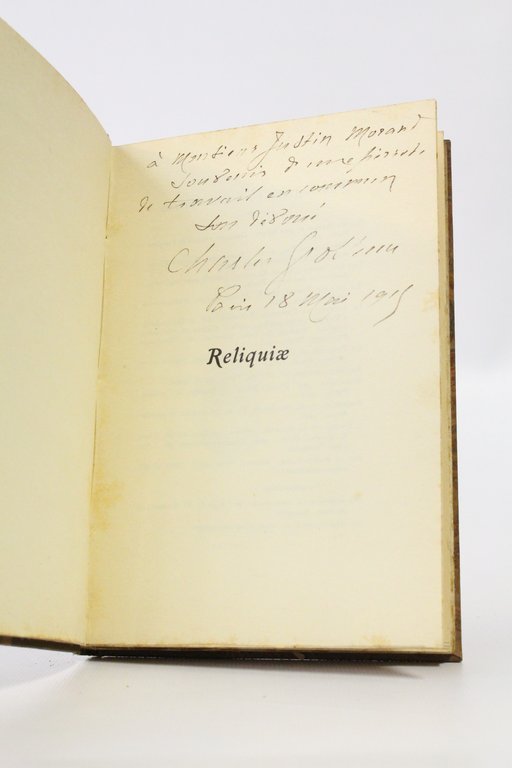 à Monsieur Justin Morant
Souvenir d'une période
de travail en commun
Son dévoué
Charles
Paris 18 Mai 1915
Reliquiæ